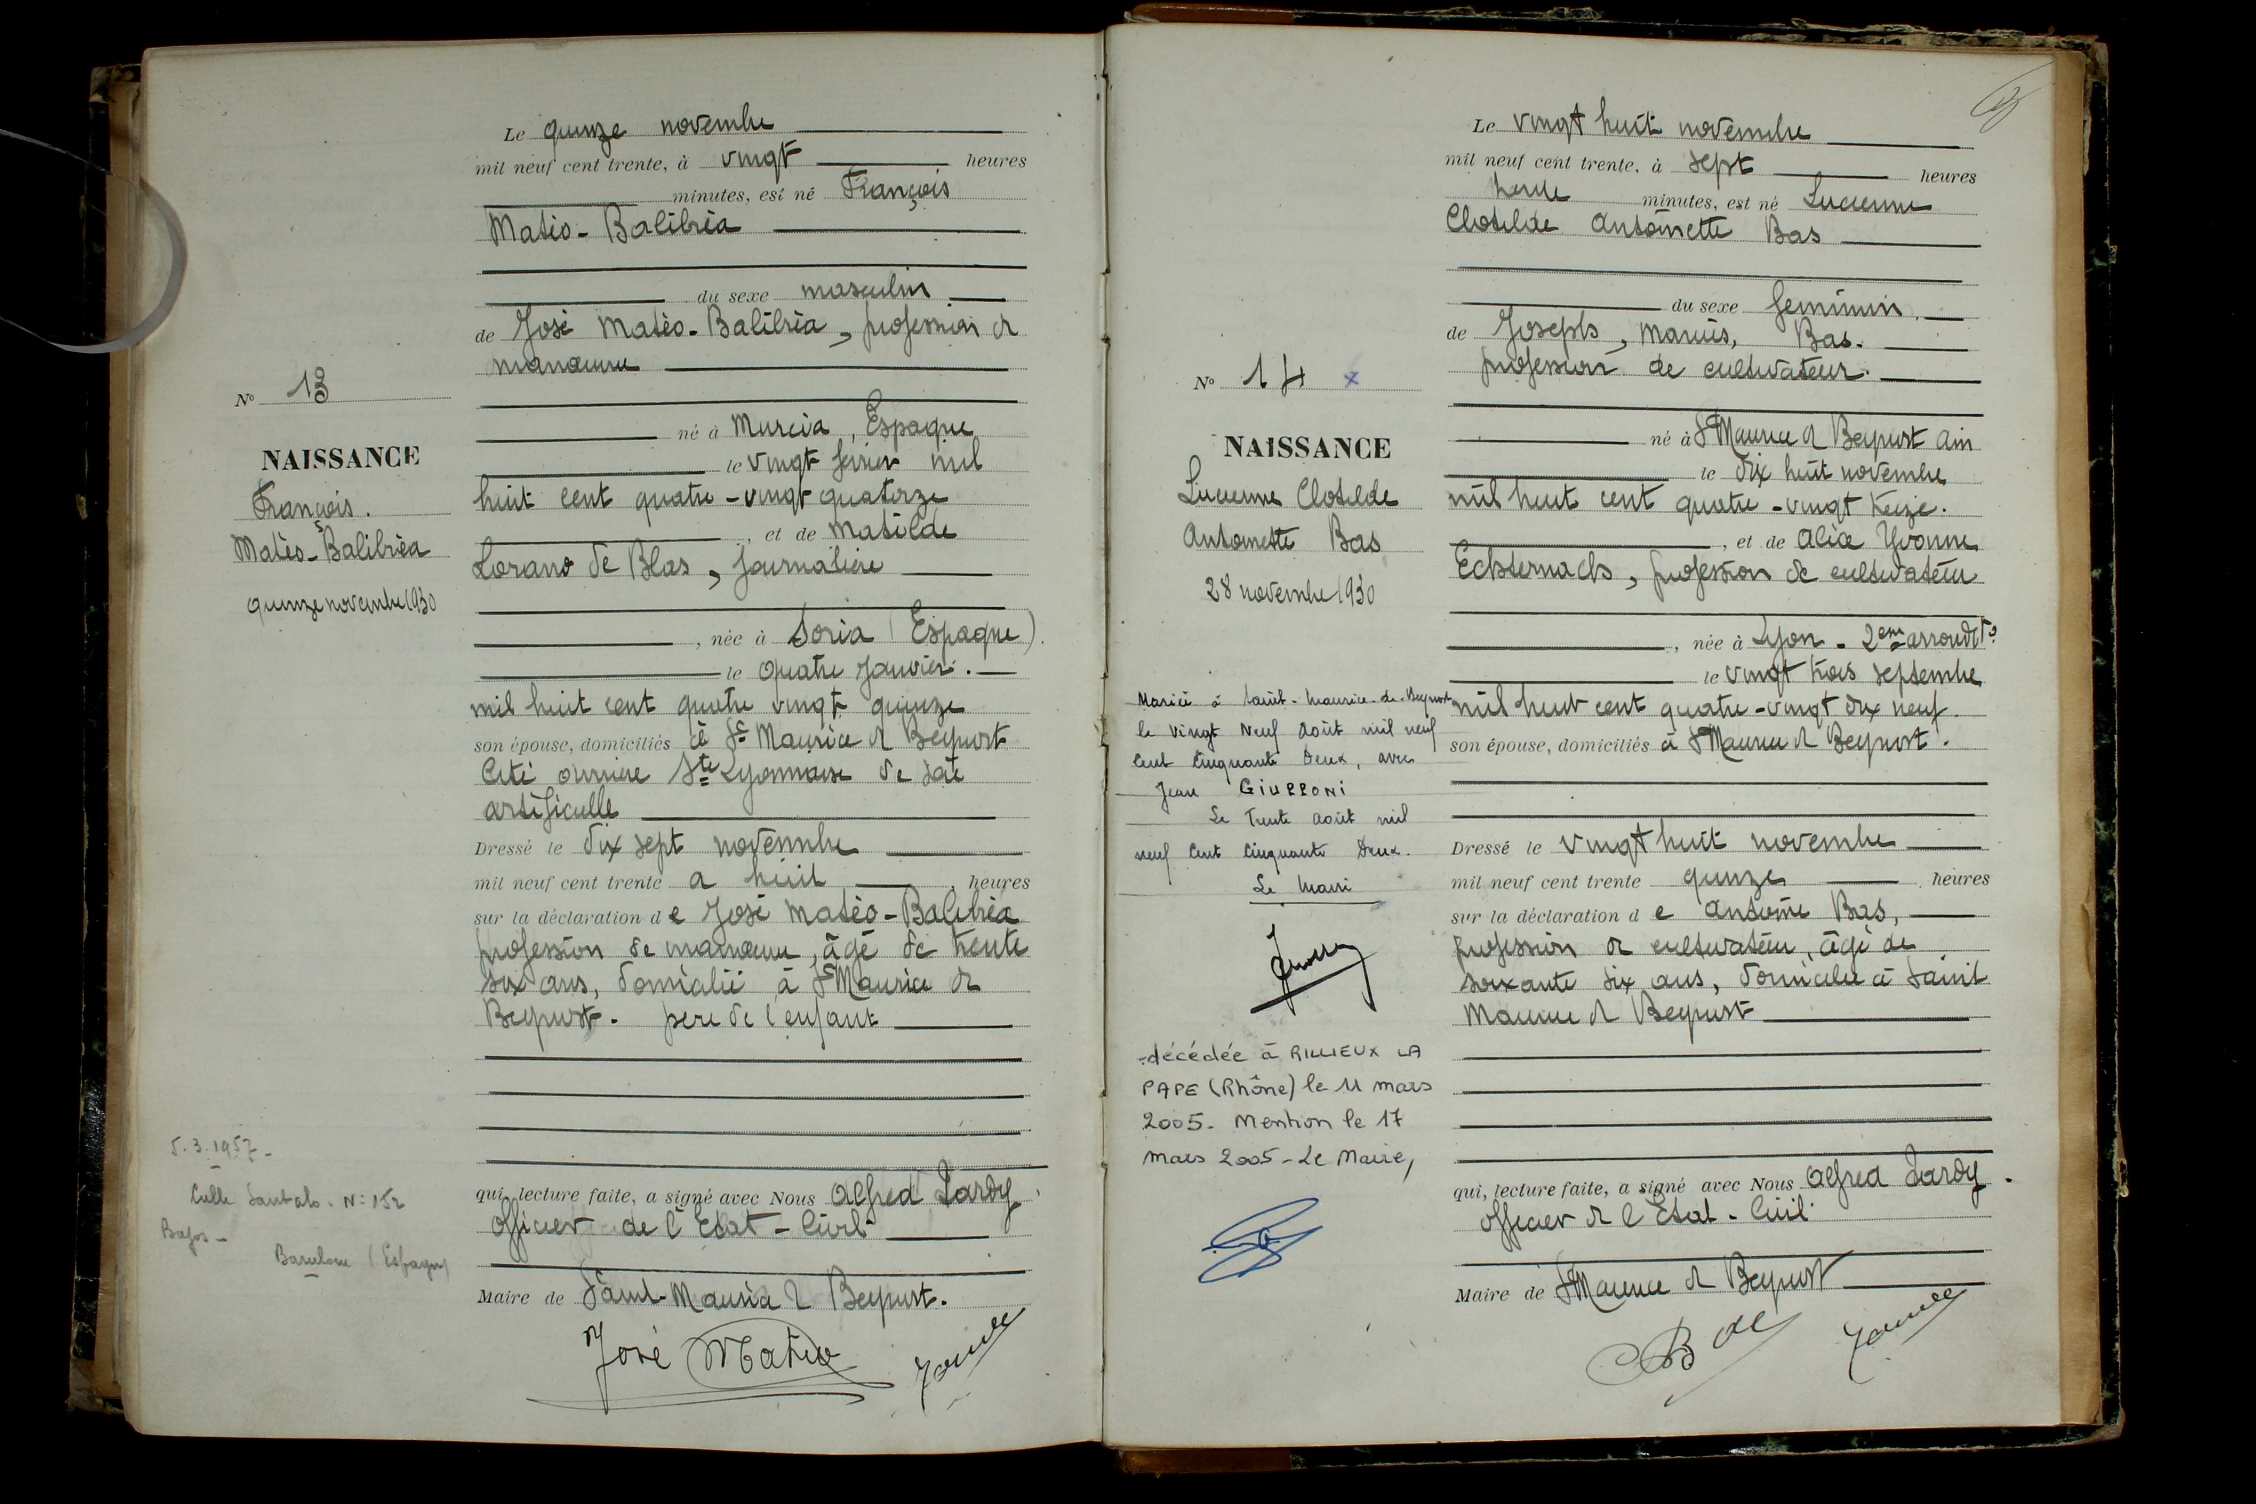 Le quinze novembre
mil neuf cent trente, à vingt heures
minutes, est né François
Matéo-Balibréa
du sexe masculin
de José Matéo-Balibréa, profession de
manœuvre
né à Murcia, Espagne
le vingt février mil
huit cent quatre-vingt quatorze
, et de Matilde
Lorano de Blas, journalière
, née à Soria (Espagne).
le quatre janvier.
mil huit cent quatre vingt quinze
son épouse, domiciliés à St Maurice de Beynost
Cité ouvrière Sté Lyonnaise de soie
artificielle
Dressé le dix sept novembre
mil neuf cent trente à huit heures
sur la déclaration de José Matéo-Balibréa
profession de manœuvre, âgé de trente
six ans, domicilié à St Maurice de
Beynost. père de l'enfant
qui, lecture faite, a signé avec Nous Alfred Jardy
Officier de l'Etat-Civil
Maire de Saint-Maurice de Beynost.
José Mateo
N° 13
NAISSANCE
François.
Matéo-Balibréa
quinze novembre 1930
5.3.1957-
Calle Santalo. N: 152
Bajos-
Barcelone (Espagne)
Le vingt huit novembre
mil neuf cent trente, à sept heures
trente minutes, est né Lucienne
Clotilde Antoinette Bas
du sexe féminin.
de Joseph, Marius, Bas.
profession de cultivateur.
né à St Maurice de Beynost Ain
le dix huit novembre
mil huit cent quatre-vingt treize.
, et de Alice Yvonne
Echternach, profession de cultivateur
, née à Lyon - 2eme arrondt
le vingt trois septembre
mil huit cent quatre-vingt dix neuf.
son épouse, domiciliés à St Maurice de Beynost.
Dressé le vingt huit novembre
mil neuf cent trente quinze heures
sur la déclaration de Antoine Bas,
profession de cultivateur, âgé de
soixante six ans, domicilié à Saint
Maurice de Beynost
qui, lecture faite, a signé avec Nous Alfred Jardy.
Officier de l'Etat-Civil.
Maire de St Maurice de Beynost
N° 14 x
NAISSANCE
Lucienne Clotilde
Antoinette Bas
28 novembre 1930
Mariée à Saint-Maurice-de-Beynost
le Vingt Neuf Août mil neuf
cent Cinquante Deux, avec
Jean GIUPPONI
Le Trente Août mil
neuf Cent Cinquante Deux.
Le Maire
-décédée à RILLIEUX LA
PAPE (Rhône) le 11 mars
2005. Mention le 17
mars 2005-Le Maire,